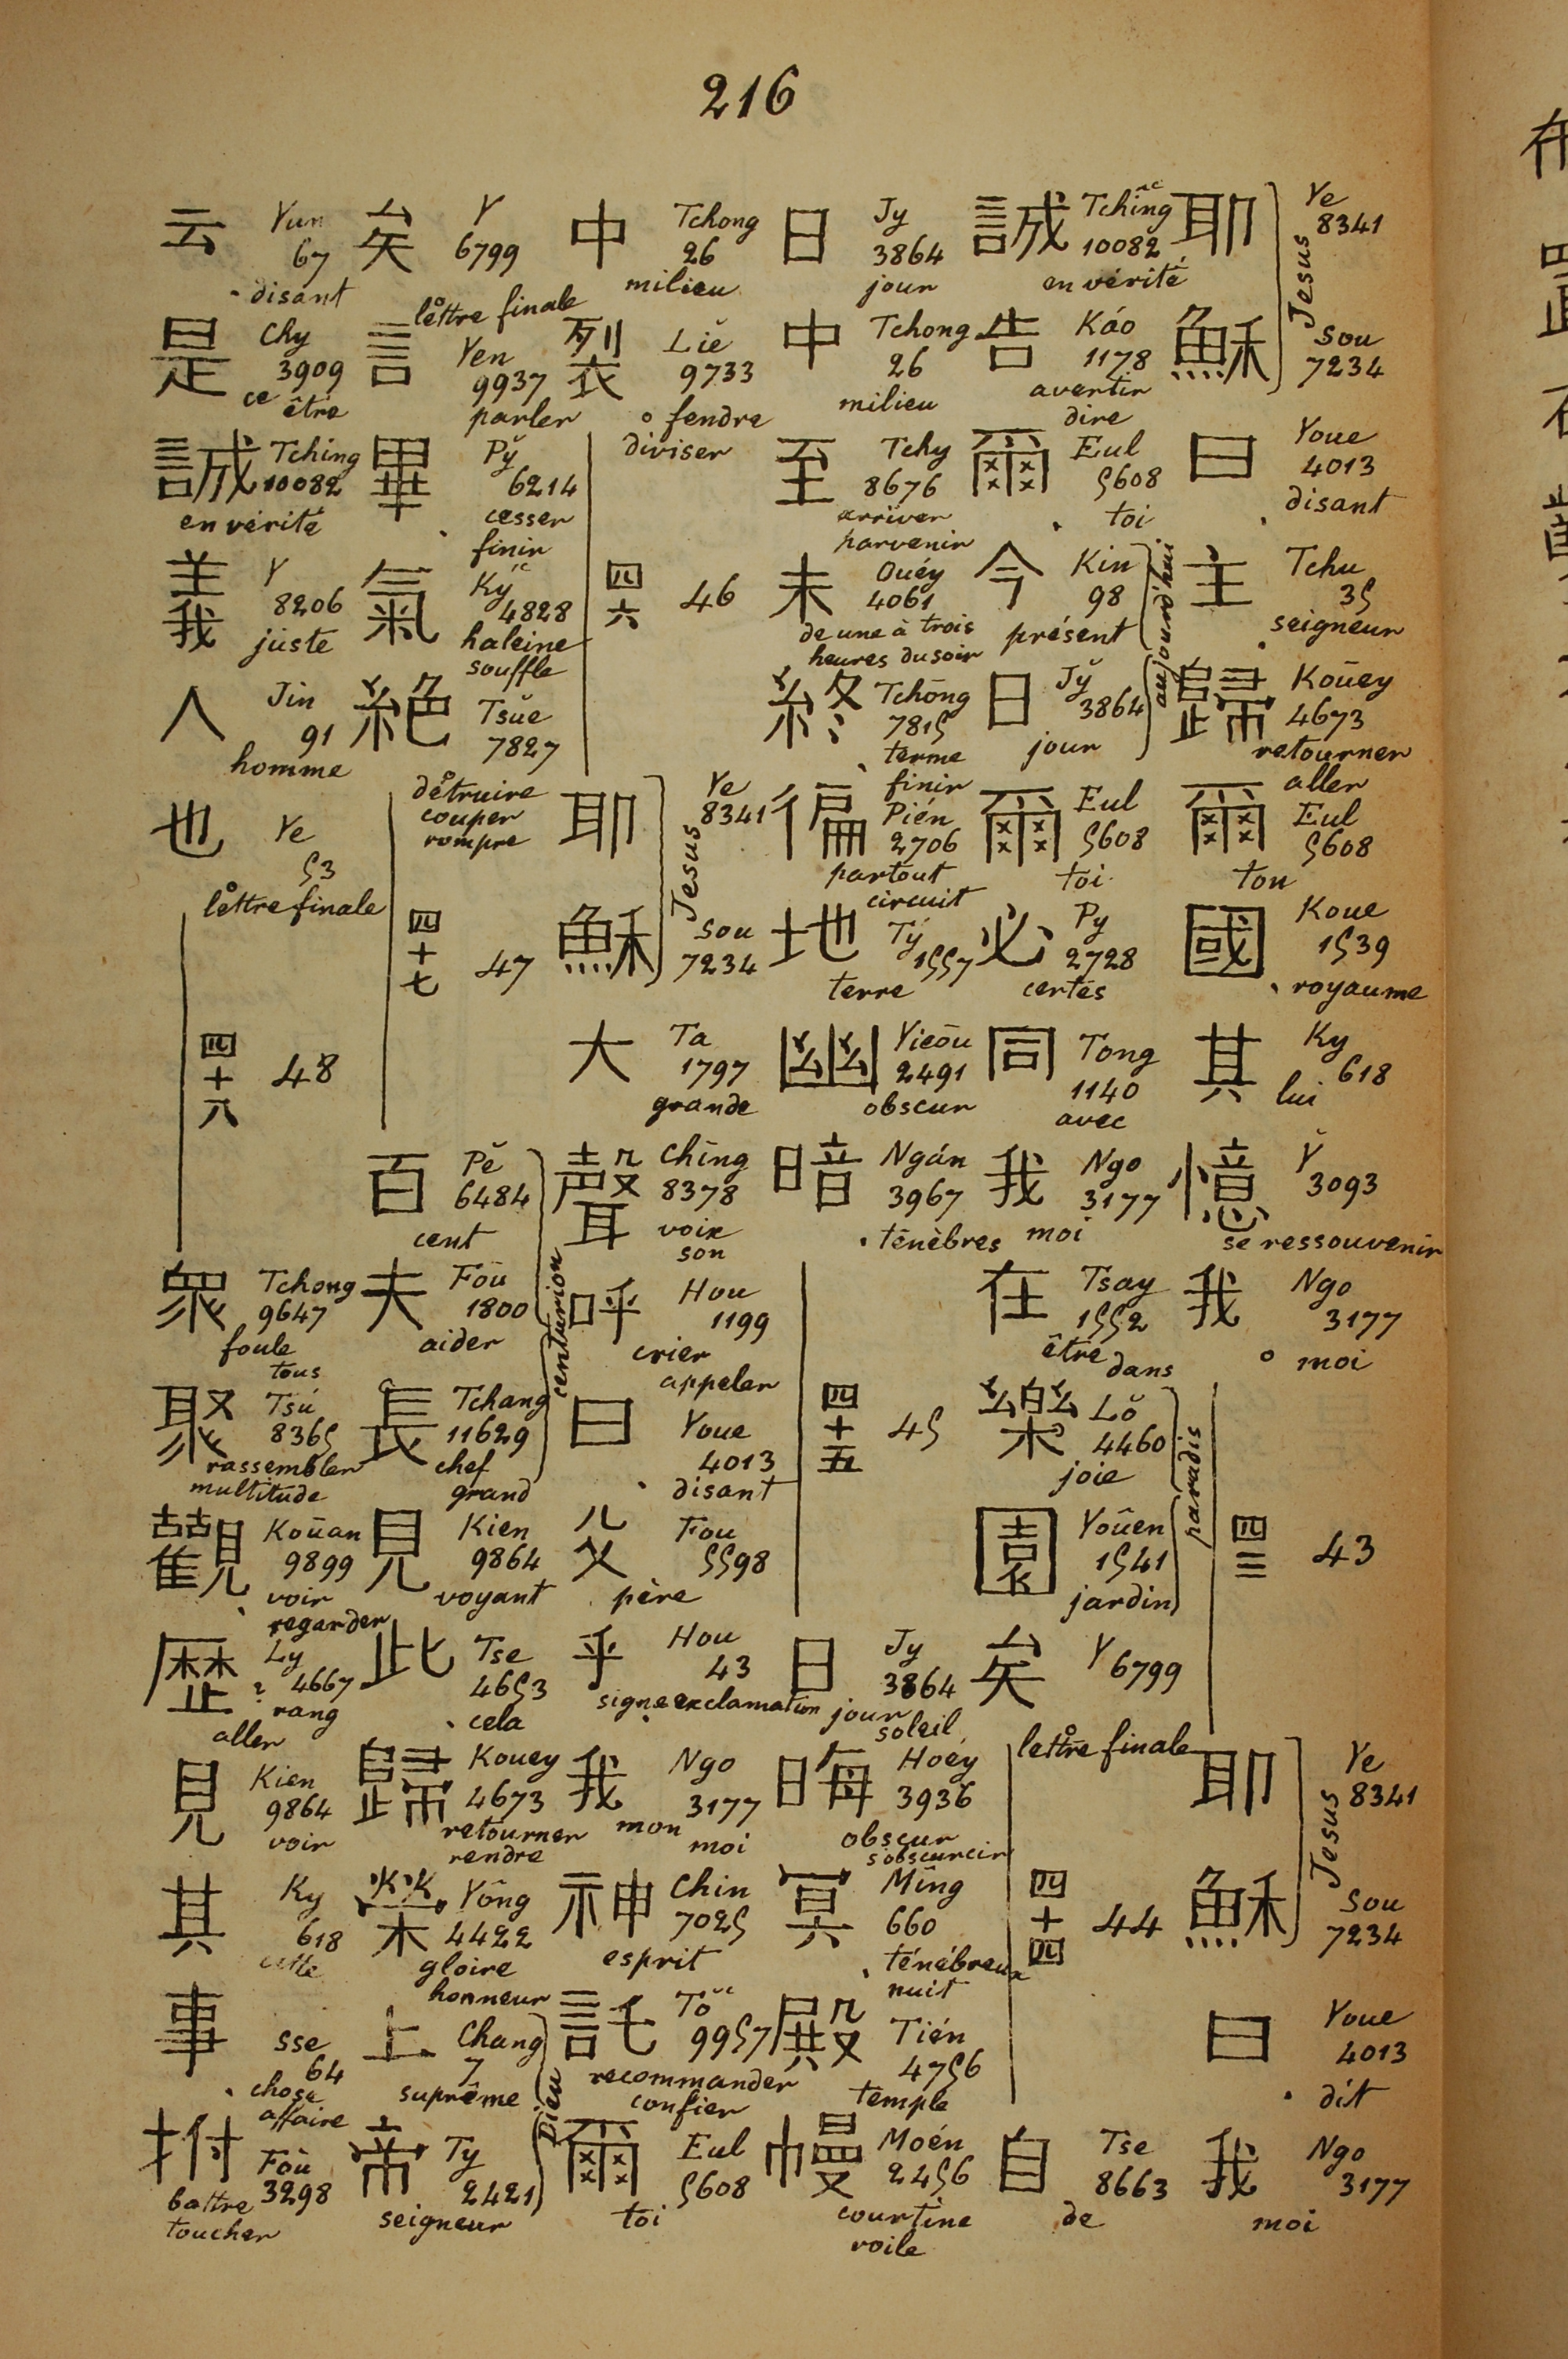 216
耶 Ye 8341
穌 Sou 7234
Jesus
曰 Youe 4013 disant
主 Tchu 35 seigneur
歸 Koūey 4673 retourner aller
爾 Eul 5608 ton
國 Koue 1539 royaume
其 Ky 618 lui
憶 Y̆ 3093 se ressouvenir
我 Ngo 3177 moi
四三 43
耶 Ye 8341
穌 Sou 7234
Jesus
曰 Youe 4013 dit
我 Ngo 3177 moi
誠 Tchîng 10082 en vérité
告 Káo 1178 avertir dire
爾 Eul 5608 toi
今 Kin 98 présent
日 Jy̆ 3864 jour
aujourd'hui
爾 Eul 5608 toi
必 Py 2728 certes
同 Tong 1140 avec
我 Ngo 3177 moi
在 Tsay 1552 être dans
樂 Lŏ 4460 joie
園 Yoûen 1541 jardin
paradis
矣 Y 6799 lettre finale
四十四 44
自 Tse 8663 de
日 Jy 3864 jour
中 Tchong 26 milieu
至 Tchy 8676 arriver parvenir
未 Ouéy 4061 de une à trois heures du soir
終 Tchōng 7815 terme finir
徧 Pién 2706 partout circuit
地 Tý 1557 terre
幽 Yieōu 2491 obscur
暗 Ngán 3967 ténèbres
四十五 45
日 Jy 3864 jour soleil
晦 Hoéy 3936 obscur s'obscurcir
冥 Mîng 660 ténébreux nuit
殿 Tién 4756 temple
幔 Moén 2456 courtine voile
中 Tchong 26 milieu
裂 Liĕ 9733 fendre diviser
四六 46
耶 Ye 8341
穌 Sou 7234
Jesus
大 Ta 1797 grande
聲 Chīng 8378 voix son
呼 Hou 1199 crier appeler
曰 Youe 4013 disant
父 Fou 5598 père
乎 Hou 43 signe exclamation
我 Ngo 3177 mon moi
神 Chin 7025 esprit
託 Tŏ 9957 recommander confier
爾 Eul 5608 toi
矣 Y 6799 lettre finale
言 Yen 9937 parler
畢 Py̆ 6214 cesser finir
氣 Ký 4828 haleine souffle
絕 Tsŭe 7827 détruire couper rompre
四十七 47
百 Pĕ 6484 cent
夫 Foū 1800 aider
長 Tchang 11629 chef grand
centurion
見 Kien 9864 voyant
此 Tse 4653 cela
歸 Kouey 4673 retourner rendre
榮 Yông 4422 gloire honneur
上 Chang 7 suprême
帝 Ty 2421 seigneur
Dieu
云 Yun 67 disant
是 Chy 3909 ce être
誠 Tching 10082 en vérité
義 Y 8206 juste
人 Jin 91 homme
也 Ye 53 lettre finale
四十八 48
眾 Tchong 9647 foule tous
聚 Tsú 8365 rassembler multitude
觀 Koūan 9899 voir regarder
歷 Ly 4667 rang aller
見 Kien 9864 voir
其 Ky 618 cette
事 Sse 64 chose affaire
拊 Foù 3298 battre toucher